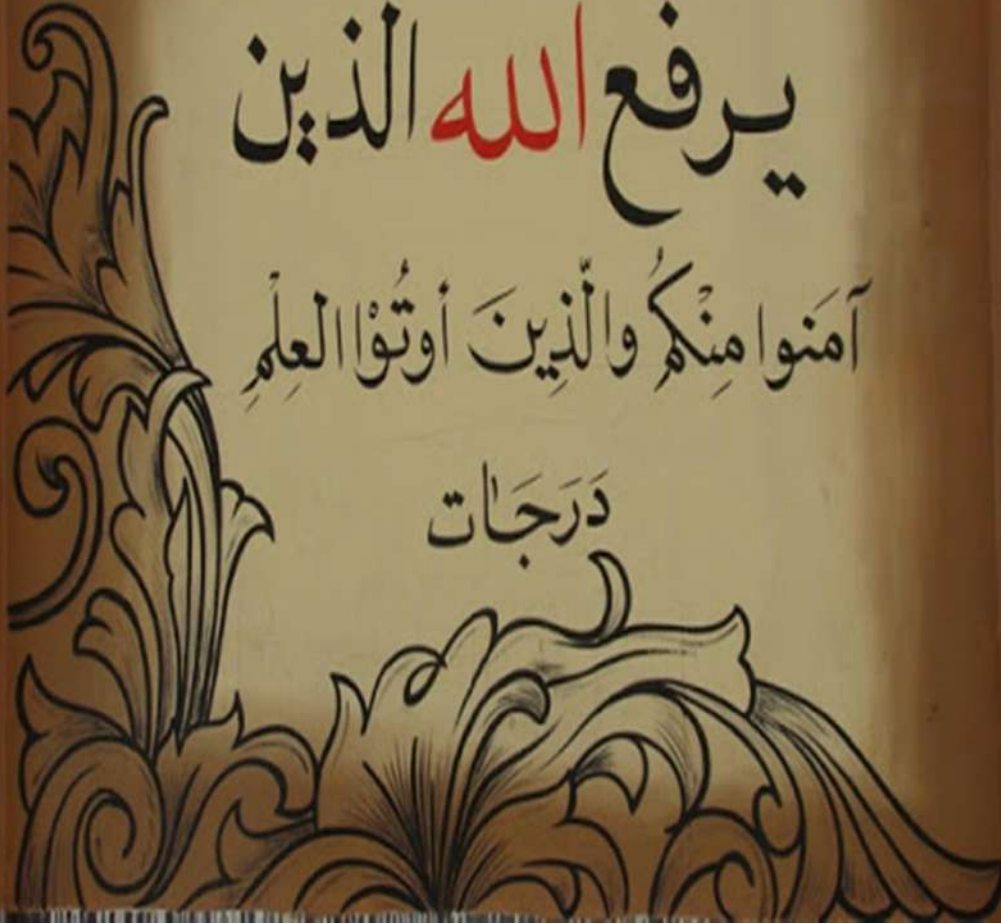 يرفع الله الذين
آمَنوا مِنْكُم والّذِينَ أوتُوْا العِلْمِ
دَرَجَات